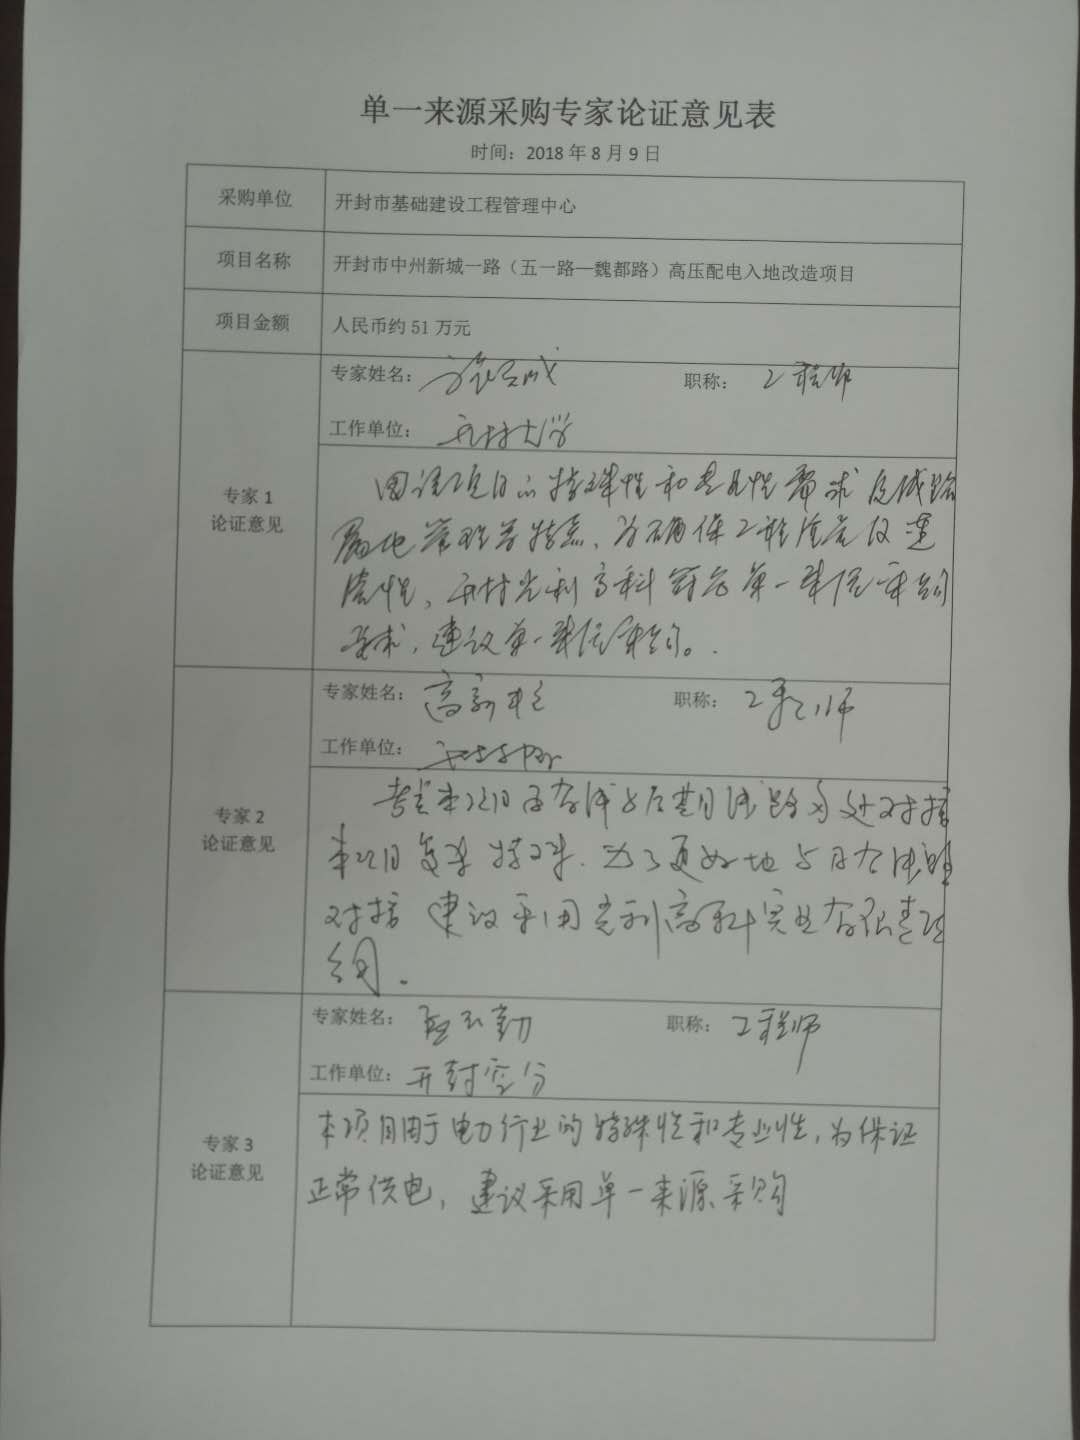 单一来源采购专家论证意见表
时间：2018 年 8 月 9 日
采购单位 开封市基础建设工程管理中心
项目名称 开封市中州新城一路（五一路—魏都路）高压配电入地改造项目
项目金额 人民币约 51 万元
专家姓名： 职称： 工程师
工作单位： 开封大学
专家 1
论证意见
因该项目的特殊性和专业性需求及线路
属地管理等特点、为确保工程质量及运
性、开封光利高科符合单一来源采购
要求，建议单一来源采购。
专家姓名： 高新 职称： 工程师
工作单位：
专家 2
论证意见
考虑本项目
本项目复杂特殊．为了更好地与
对接 建议采用光利高科实业有限责任
公司．
专家姓名： 职称： 工程师
工作单位： 开封空分
专家 3
论证意见
本项目用于电力行业的特殊性和专业性，为保证
正常供电，建议采用单一来源采购